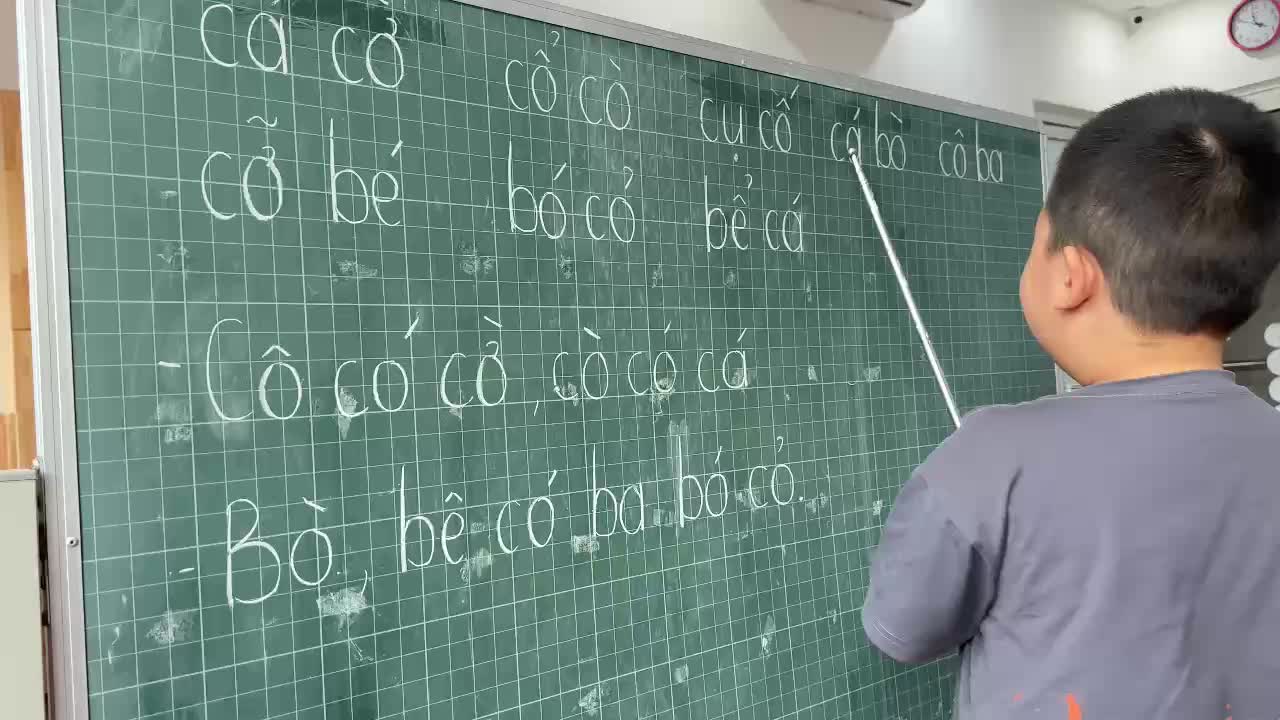 cá cờ cổ cò cụ cố cá bò cô ba
cỡ bé bó cỏ bể cá
- Cô có cờ, cò có cá
- Bò, bê có ba bó cỏ.